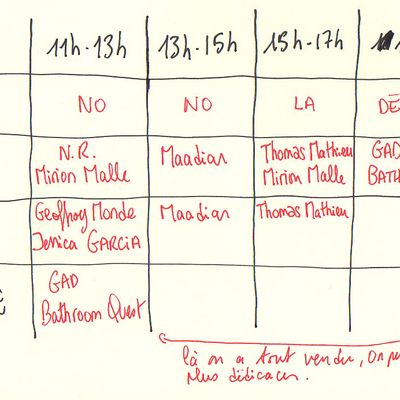 11h-13h 13h-15h 15h-17h
NO NO LA DÉ
N.R. Maadiar Thomas Mathieu GAD
Mirion Malle Mirion Malle BATH
Geoffroy Monde Maadiar Thomas Mathieu
Jessica GARCIA
GAD
Bathroom Quest
là on a tout vendu, on
plus dédicacer.